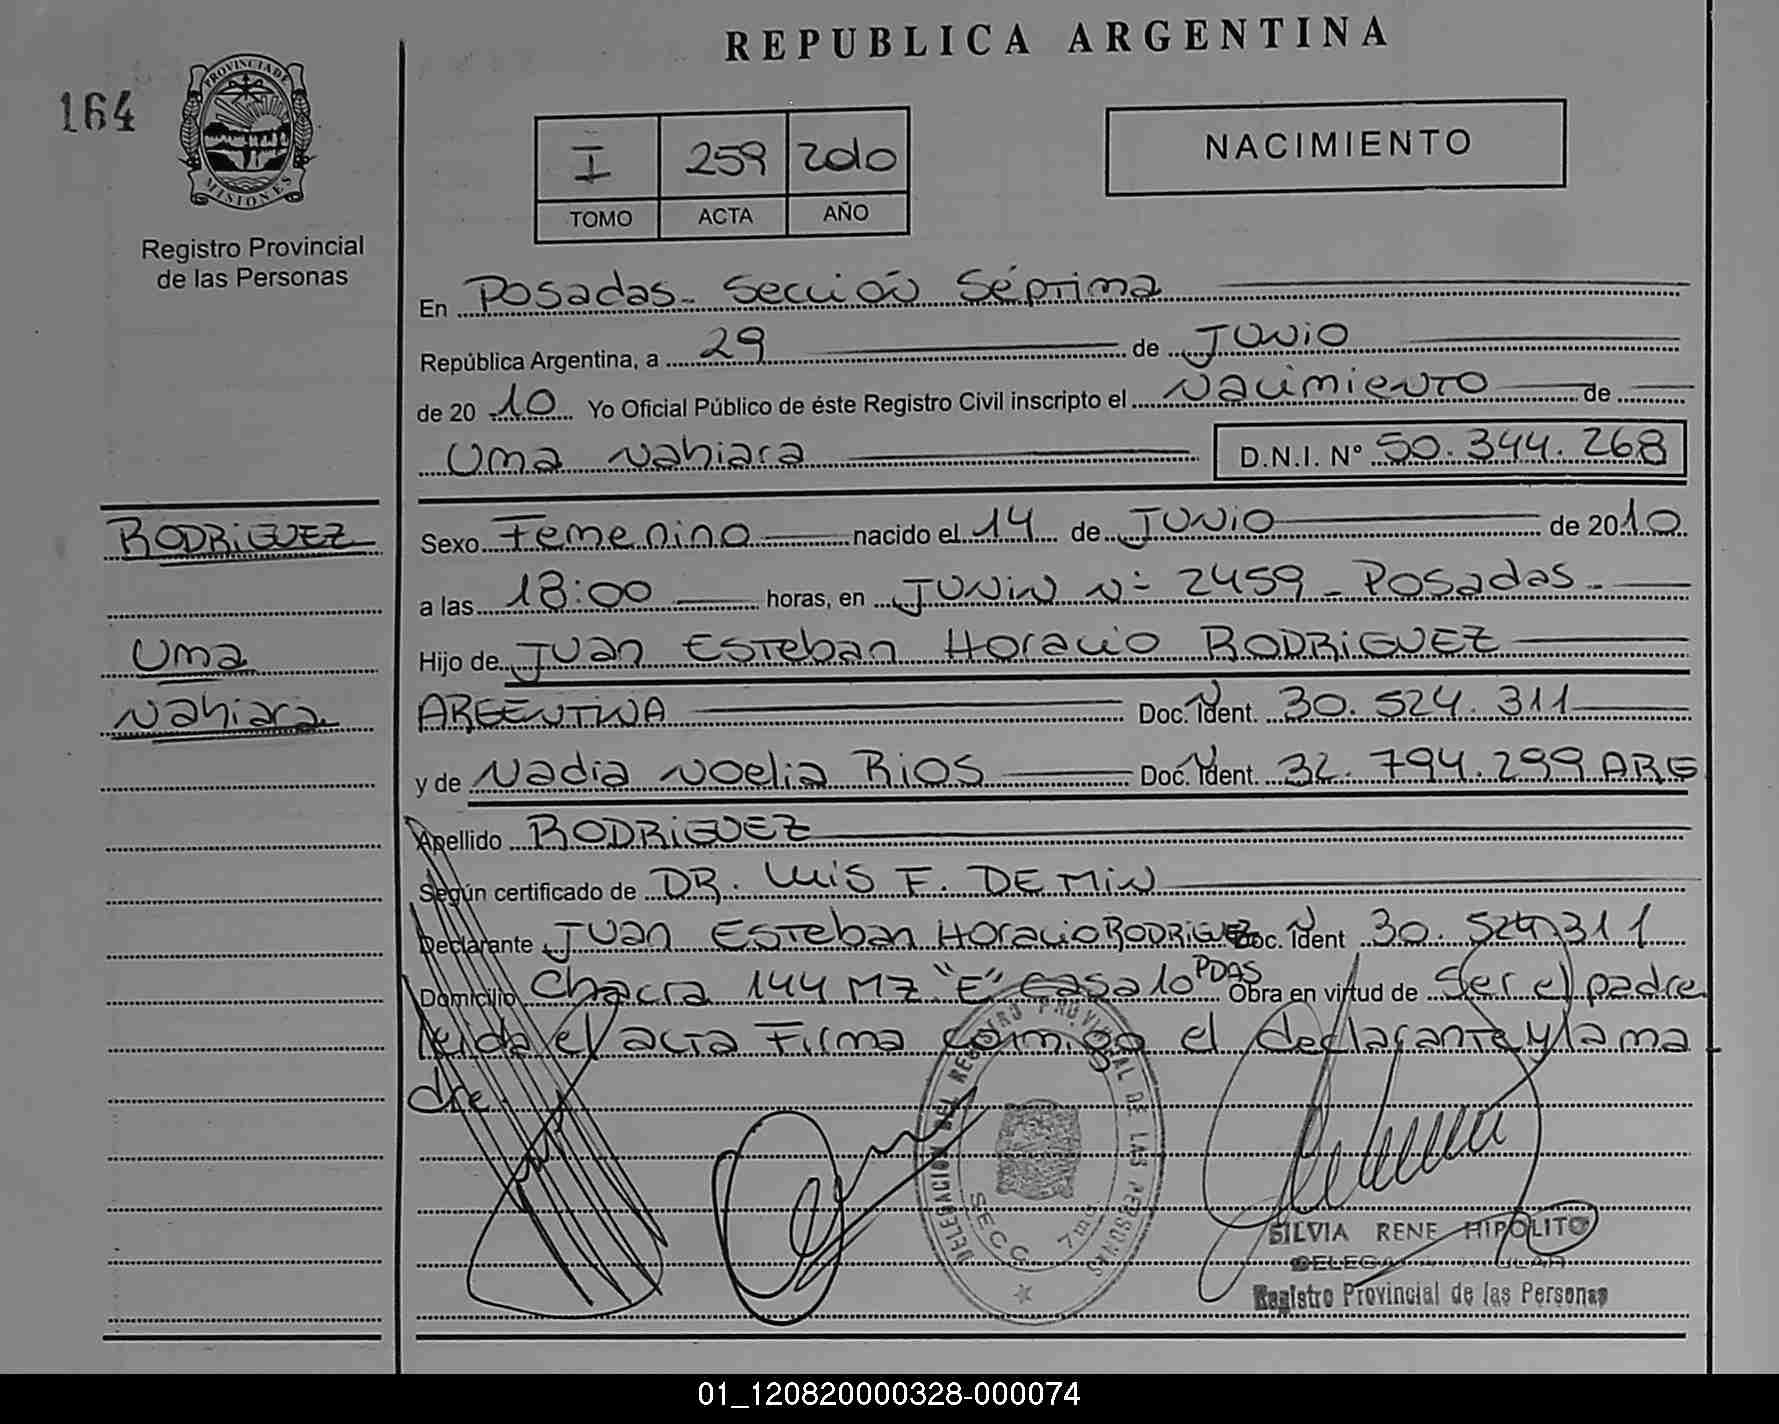 REPUBLICA ARGENTINA
164
PROVINCIA DE
MISIONES
Registro Provincial
de las Personas
I 259 2010
TOMO ACTA AÑO
NACIMIENTO
En Posadas - Sección Séptima
República Argentina, a 29 de Junio
de 2010 Yo Oficial Público de éste Registro Civil inscripto el Nacimiento de
Uma Nahiara D.N.I. N° 50.344.268
RODRIGUEZ
Uma
Nahiara
Sexo Femenino nacido el 14 de Junio de 2010
a las 18:00 horas, en Junin N° 2459 - Posadas -
Hijo de Juan Esteban Horacio RODRIGUEZ
ARGENTINA Doc. Ident. N 30.524.311
y de Nadia Noelia Rios Doc. Ident. N 32.794.299 ARG
Apellido RODRIGUEZ
Según certificado de DR. Luis F. DEMIN
Declarante Juan Esteban Horacio RODRIGUEZ Doc. Ident N 30.524.311
Domicilio Chacra 144 MZ "E" Casa 10 PDAS Obra en virtud de Ser el padre
leida el acta Firma conmigo el declarante y la ma
dre.
DELEGACION DEL REGISTRO PROVINCIAL DE LAS PERSONAS
SECC. 7ma.
SILVIA RENE HIPOLITO
Registro Provincial de las Personas
01_120820000328-000074